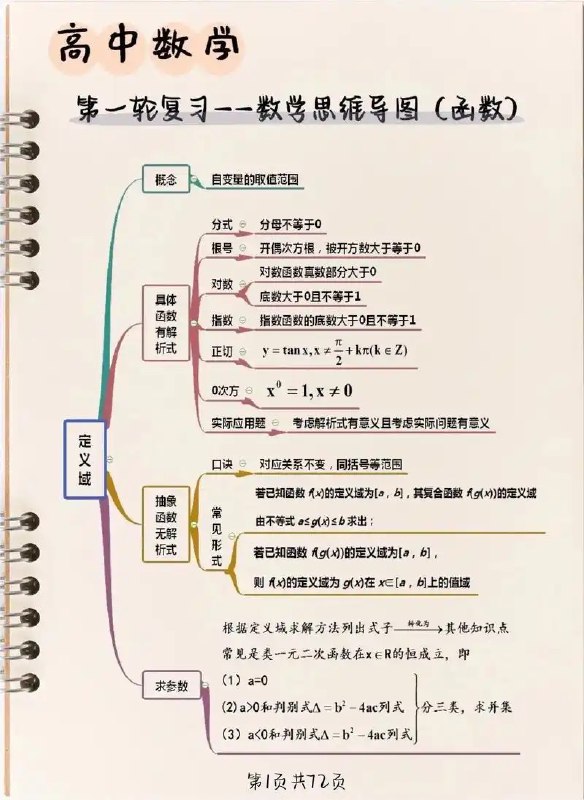 高中数学
第一轮复习--数学思维导图（函数）
概念
自变量的取值范围
分式
分母不等于0
根号
开偶次方根，被开方数大于等于0
对数
对数函数真数部分大于0
底数大于0且不等于1
具体
函数
有解
析式
指数
指数函数的底数大于0且不等于1
正切
y = tan x, x ≠ π/2 + kπ(k ∈ Z)
0次方
x⁰ = 1, x ≠ 0
实际应用题
考虑解析式有意义且考虑实际问题有意义
定义域
口诀
对应关系不变，同括号等范围
抽象
函数
无解
析式
常见形式
若已知函数 f(x)的定义域为[a，b]，其复合函数 f(g(x))的定义域
由不等式 a≤g(x)≤b 求出；
若已知函数 f(g(x))的定义域为[a，b]，
则 f(x)的定义域为 g(x)在 x∈[a，b]上的值域
求参数
根据定义域求解方法列出式子 转化为 其他知识点
常见是类一元二次函数在x∈R的恒成立，即
（1）a=0
(2)a>0和判别式Δ = b² − 4ac列式
（3）a<0和判别式Δ = b² − 4ac列式
分三类，求并集
第1页 共72页